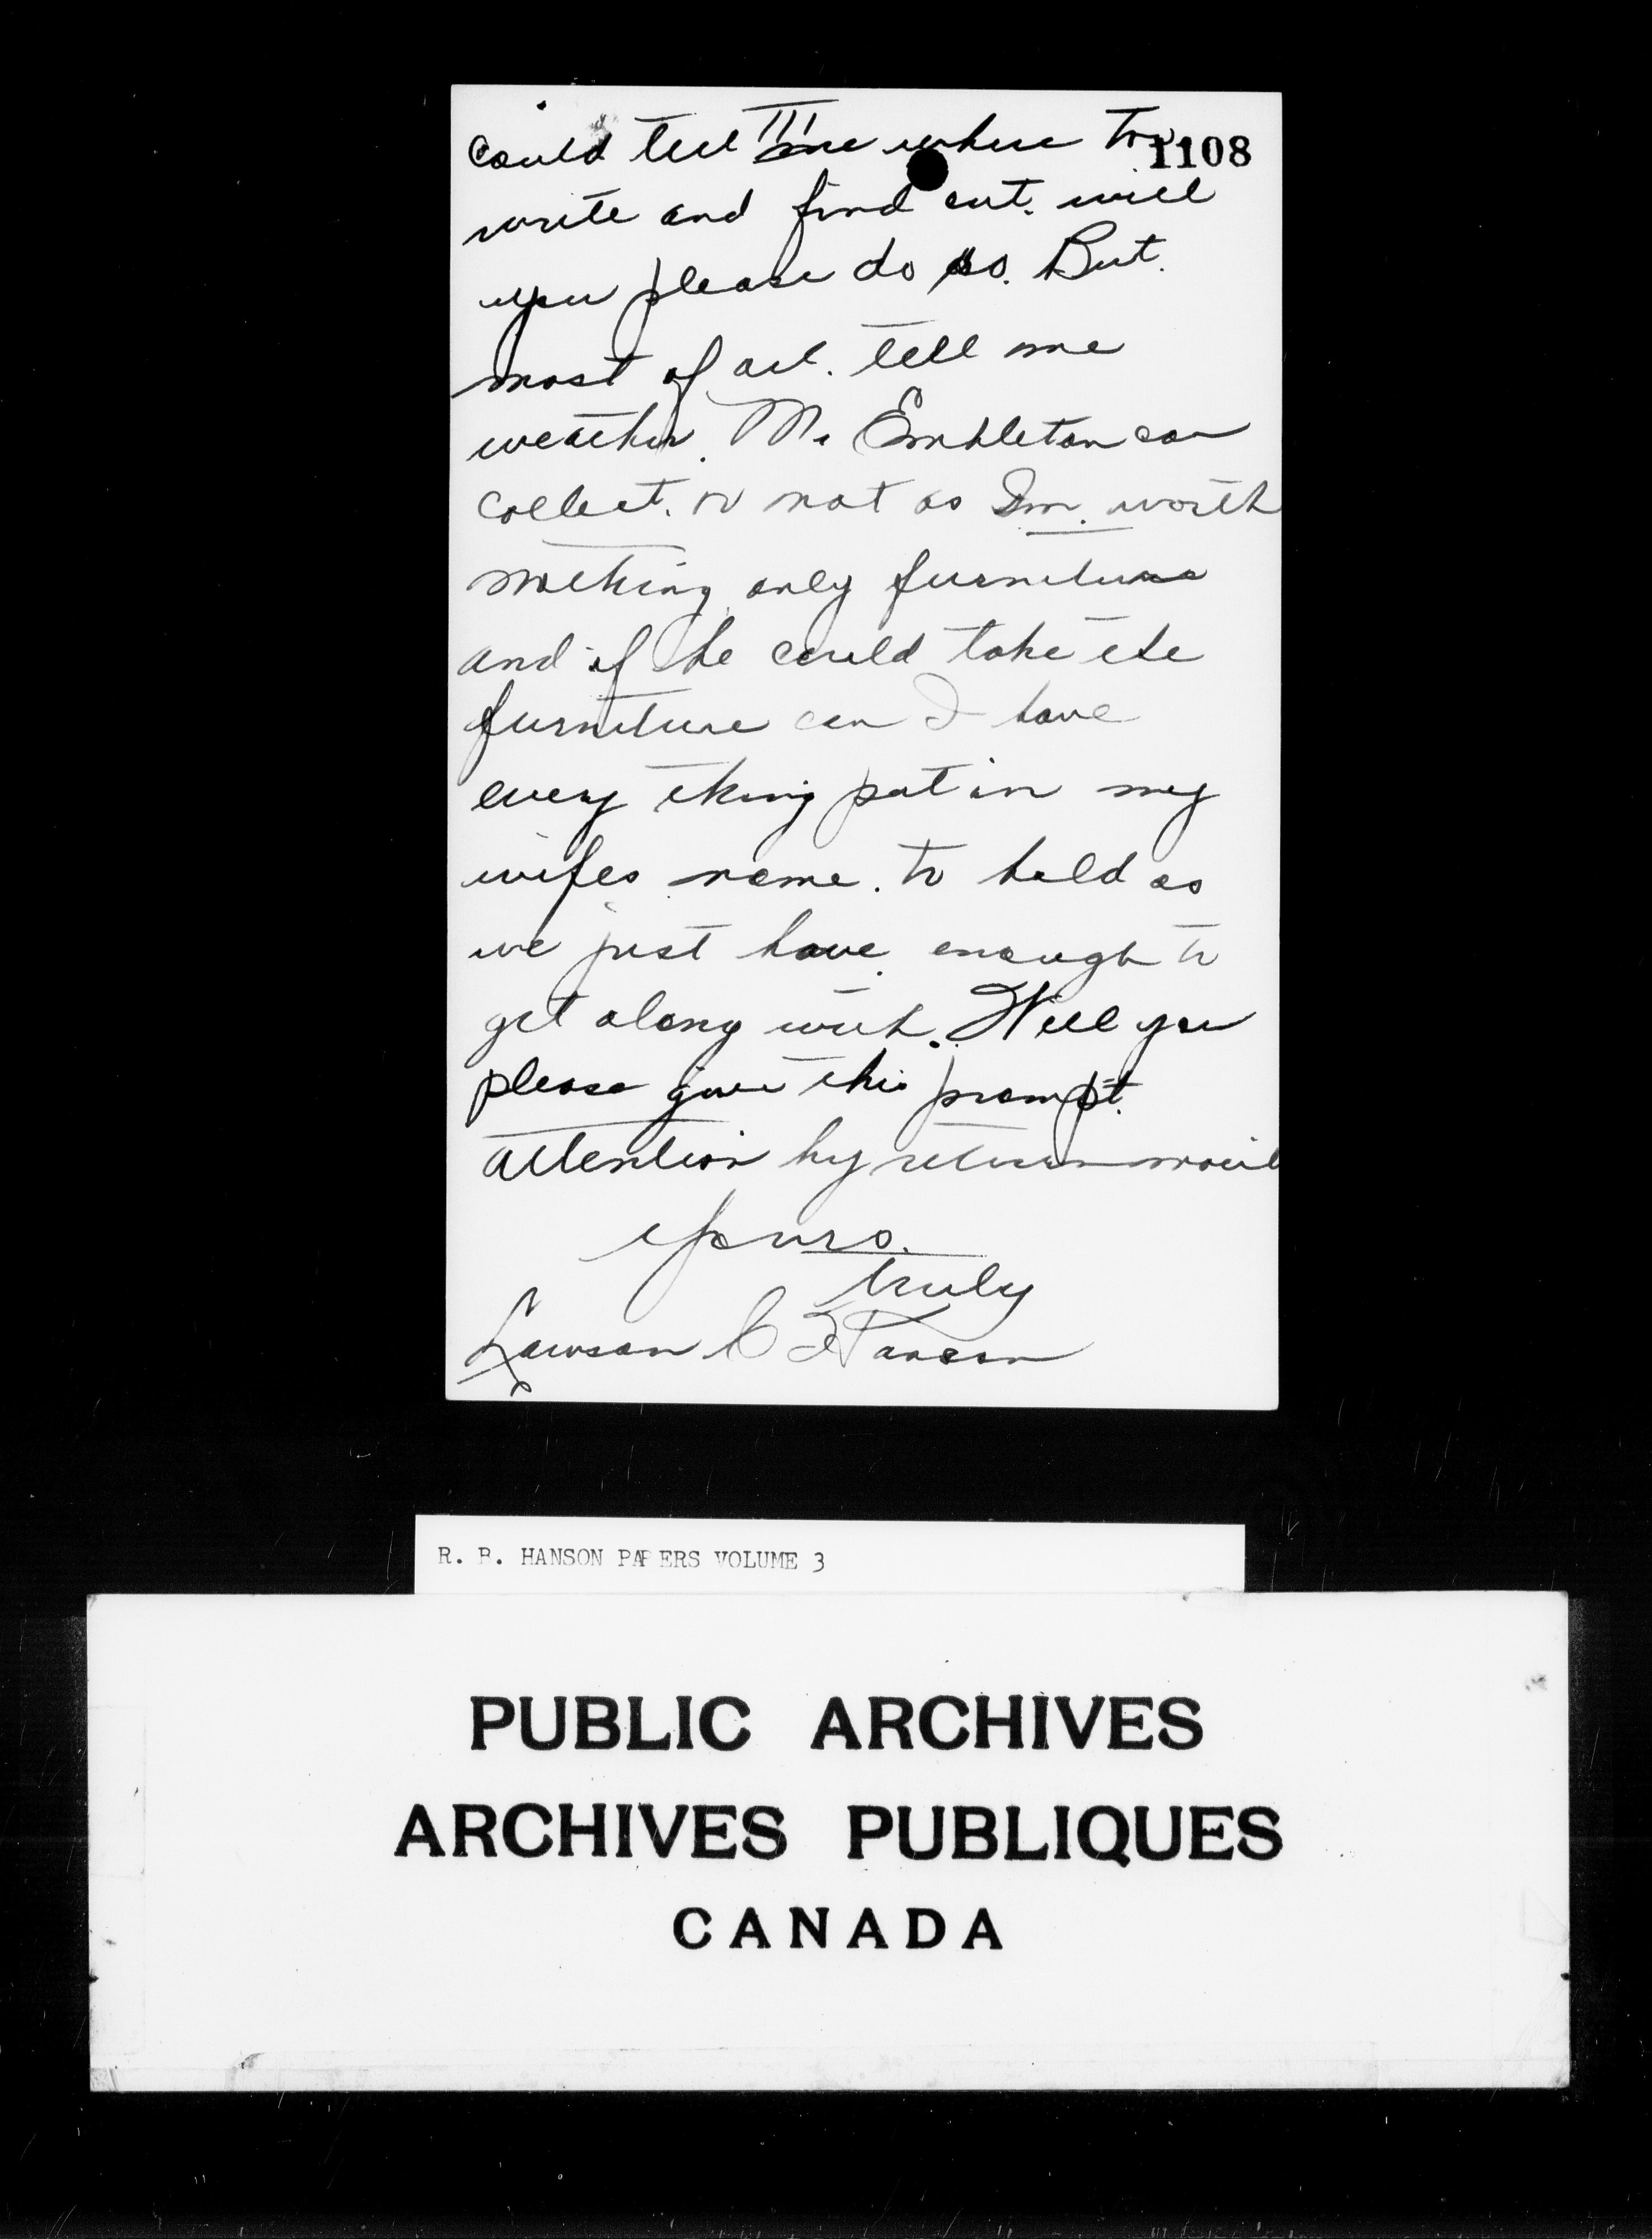 III
1108
could tell me where to
write and find out. will
you please do so. But.
most of all. tell me
weather. Mr Embleton can
collect. or not as Im. worth
nothing only furniture
and if he could take the
furniture can I have
every thing put in my
wifes name. to hold as
we just have enough to
get along with. Will you
please give this prompt.
attention by return mail
yours.
truly
Lawson C
R. B. HANSON PAPERS VOLUME 3
PUBLIC ARCHIVES
ARCHIVES PUBLIQUES
CANADA